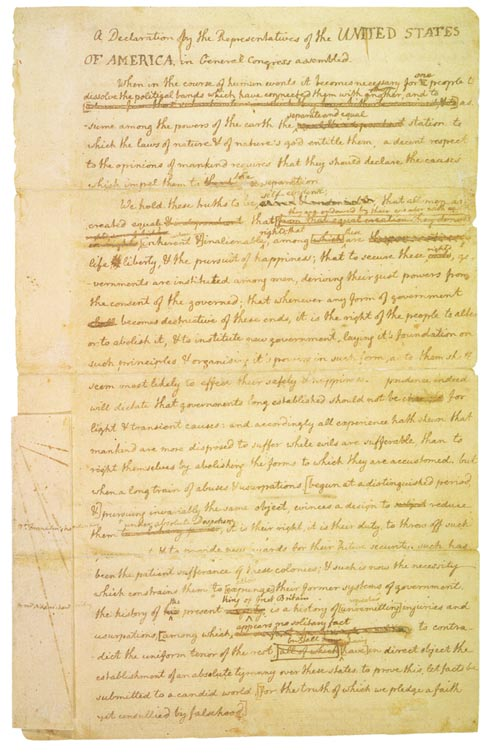 A Declaration by the Representatives of the UNITED STATES
OF AMERICA, in General Congress assembled.
When in the course of human events it becomes necessary for one people to
dissolve the political bands which have connected them with another, and to as-
-sume among the powers of the earth the separate and equal station to
which the laws of nature & of nature's god entitle them, a decent respect
to the opinions of mankind requires that they should declare the causes
which impel them to the separation.
We hold these truths to be self-evident, that all men are
created equal that they are endowed by their creator with
rights that
inherent & inalienable, among which are
life liberty, & the pursuit of happiness; that to secure these rights, go
vernments are instituted among men, deriving their just powers from
the consent of the governed; that whenever any form of government
becomes destructive of these ends, it is the right of the people to alter
or to abolish it, & to institute new government, laying it's foundation on
such principles & organising it's powers in such form, as to them shall
seem most likely to effect their safety & happiness. prudence indeed
will dictate that governments long established should not be for
light & transient causes: and accordingly all experience hath shewn that
mankind are more disposed to suffer while evils are sufferable, than to
right themselves by abolishing the forms to which they are accustomed. but
when a long train of abuses & usurpations [begun at a distinguished period
&] pursuing invariably the same object, evinces a design to reduce
them under absolute Despotism, it is their right, it is their duty, to throw off such
& to provide new guards for their future security. such has
been the patient sufferance of these colonies; & such is now the necessity
which constrains them to [expunge] their former systems of government.
the history of the present King of Great Britain is a history of [unremitting] injuries and
usurpations, [among which appears no solitary fact to contra-
dict the uniform tenor of the rest have in direct object the
establishment of an absolute tyranny over these states. to prove this, let facts be
submitted to a candid world, [for the truth of which we pledge a faith
yet unsullied by falsehood]